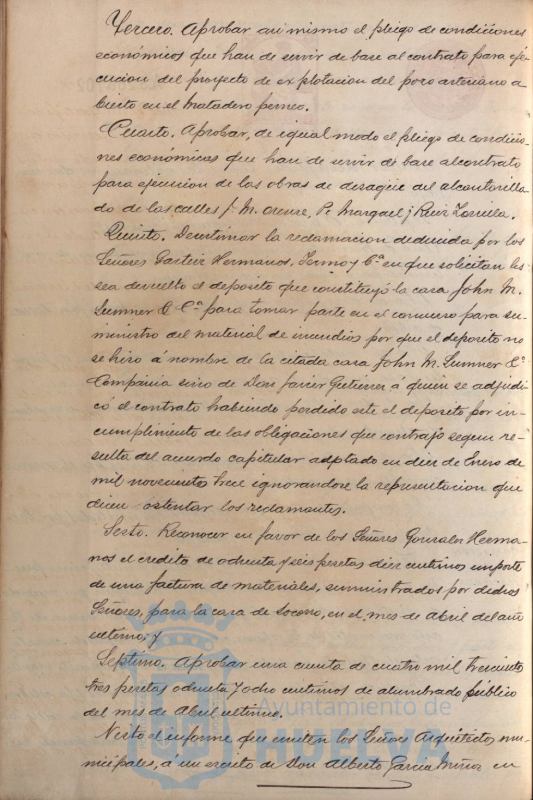 Tercero. Aprobar asi mismo el pliego de condiciones
económicos que han de servir de base al contrato para eje-
cucion del proyecto de explotacion del pozo artesiano a-
bierto en el matadero pernec.
Cuarto. Aprobar, de igual modo el pliego de condicio-
nes económicas que han de servir de base al contrato
para ejecucion de las obras de desagüe del alcantarilla-
do de las calles J. M. Orense, Pi Margael y Ruiz Zorrilla.
Quinto. Desestimar la reclamacion deducida por los
Señores Hermanos, y Cª en que solicitan les
sea devuelto el deposito que constituyó la casa John M.
Sumner & Cª para tomar parte en el concurso para su-
ministro del material de incendios por que el deposito no
se hizo á nombre de la citada casa John M. Sumner &
Compañia sino de Don Javier Gutierrez á quien se adjudi-
có el contrato habiendo perdido este el deposito por in-
cumplimiento de las obligaciones que contrajo segun re-
sulta del acuerdo capitular adptado en diez de Enero de
mil novecientos trece ignorandose la representacion que
dicen ostentar los reclamantes.
Sesto. Reconocer en favor de los Señores Gonzalez Herma-
nos el credito de ochenta y seis pesetas diez centimos importe
de una factura de materiales, suministrados por dichos
Señores, para la casa de Socorro, en el mes de Abril del año
ultimo; y
Septimo. Aprobar una cuenta de cuatro mil trescientos
tres pesetas ochenta y ocho centimos de alumbrado público
del mes de Abril ultimo.
Visto el informe que emiten los Señores Arquitectos mu-
nicipales, a un escrito de Don Alberto Garcia Muñoz en
Ayuntamiento de
HUELVA